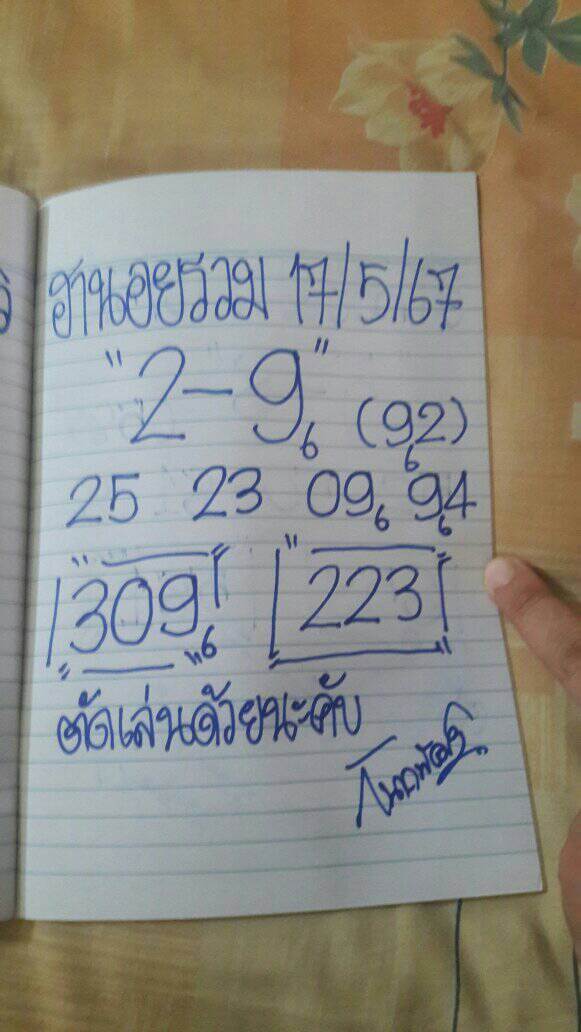 ฮานอยรวม 17/5/67
"2-9" 6 (92) 6
25 23 09 6 94 6
"309" 6 "223"
ตัดเล่นด้วยนะคับ